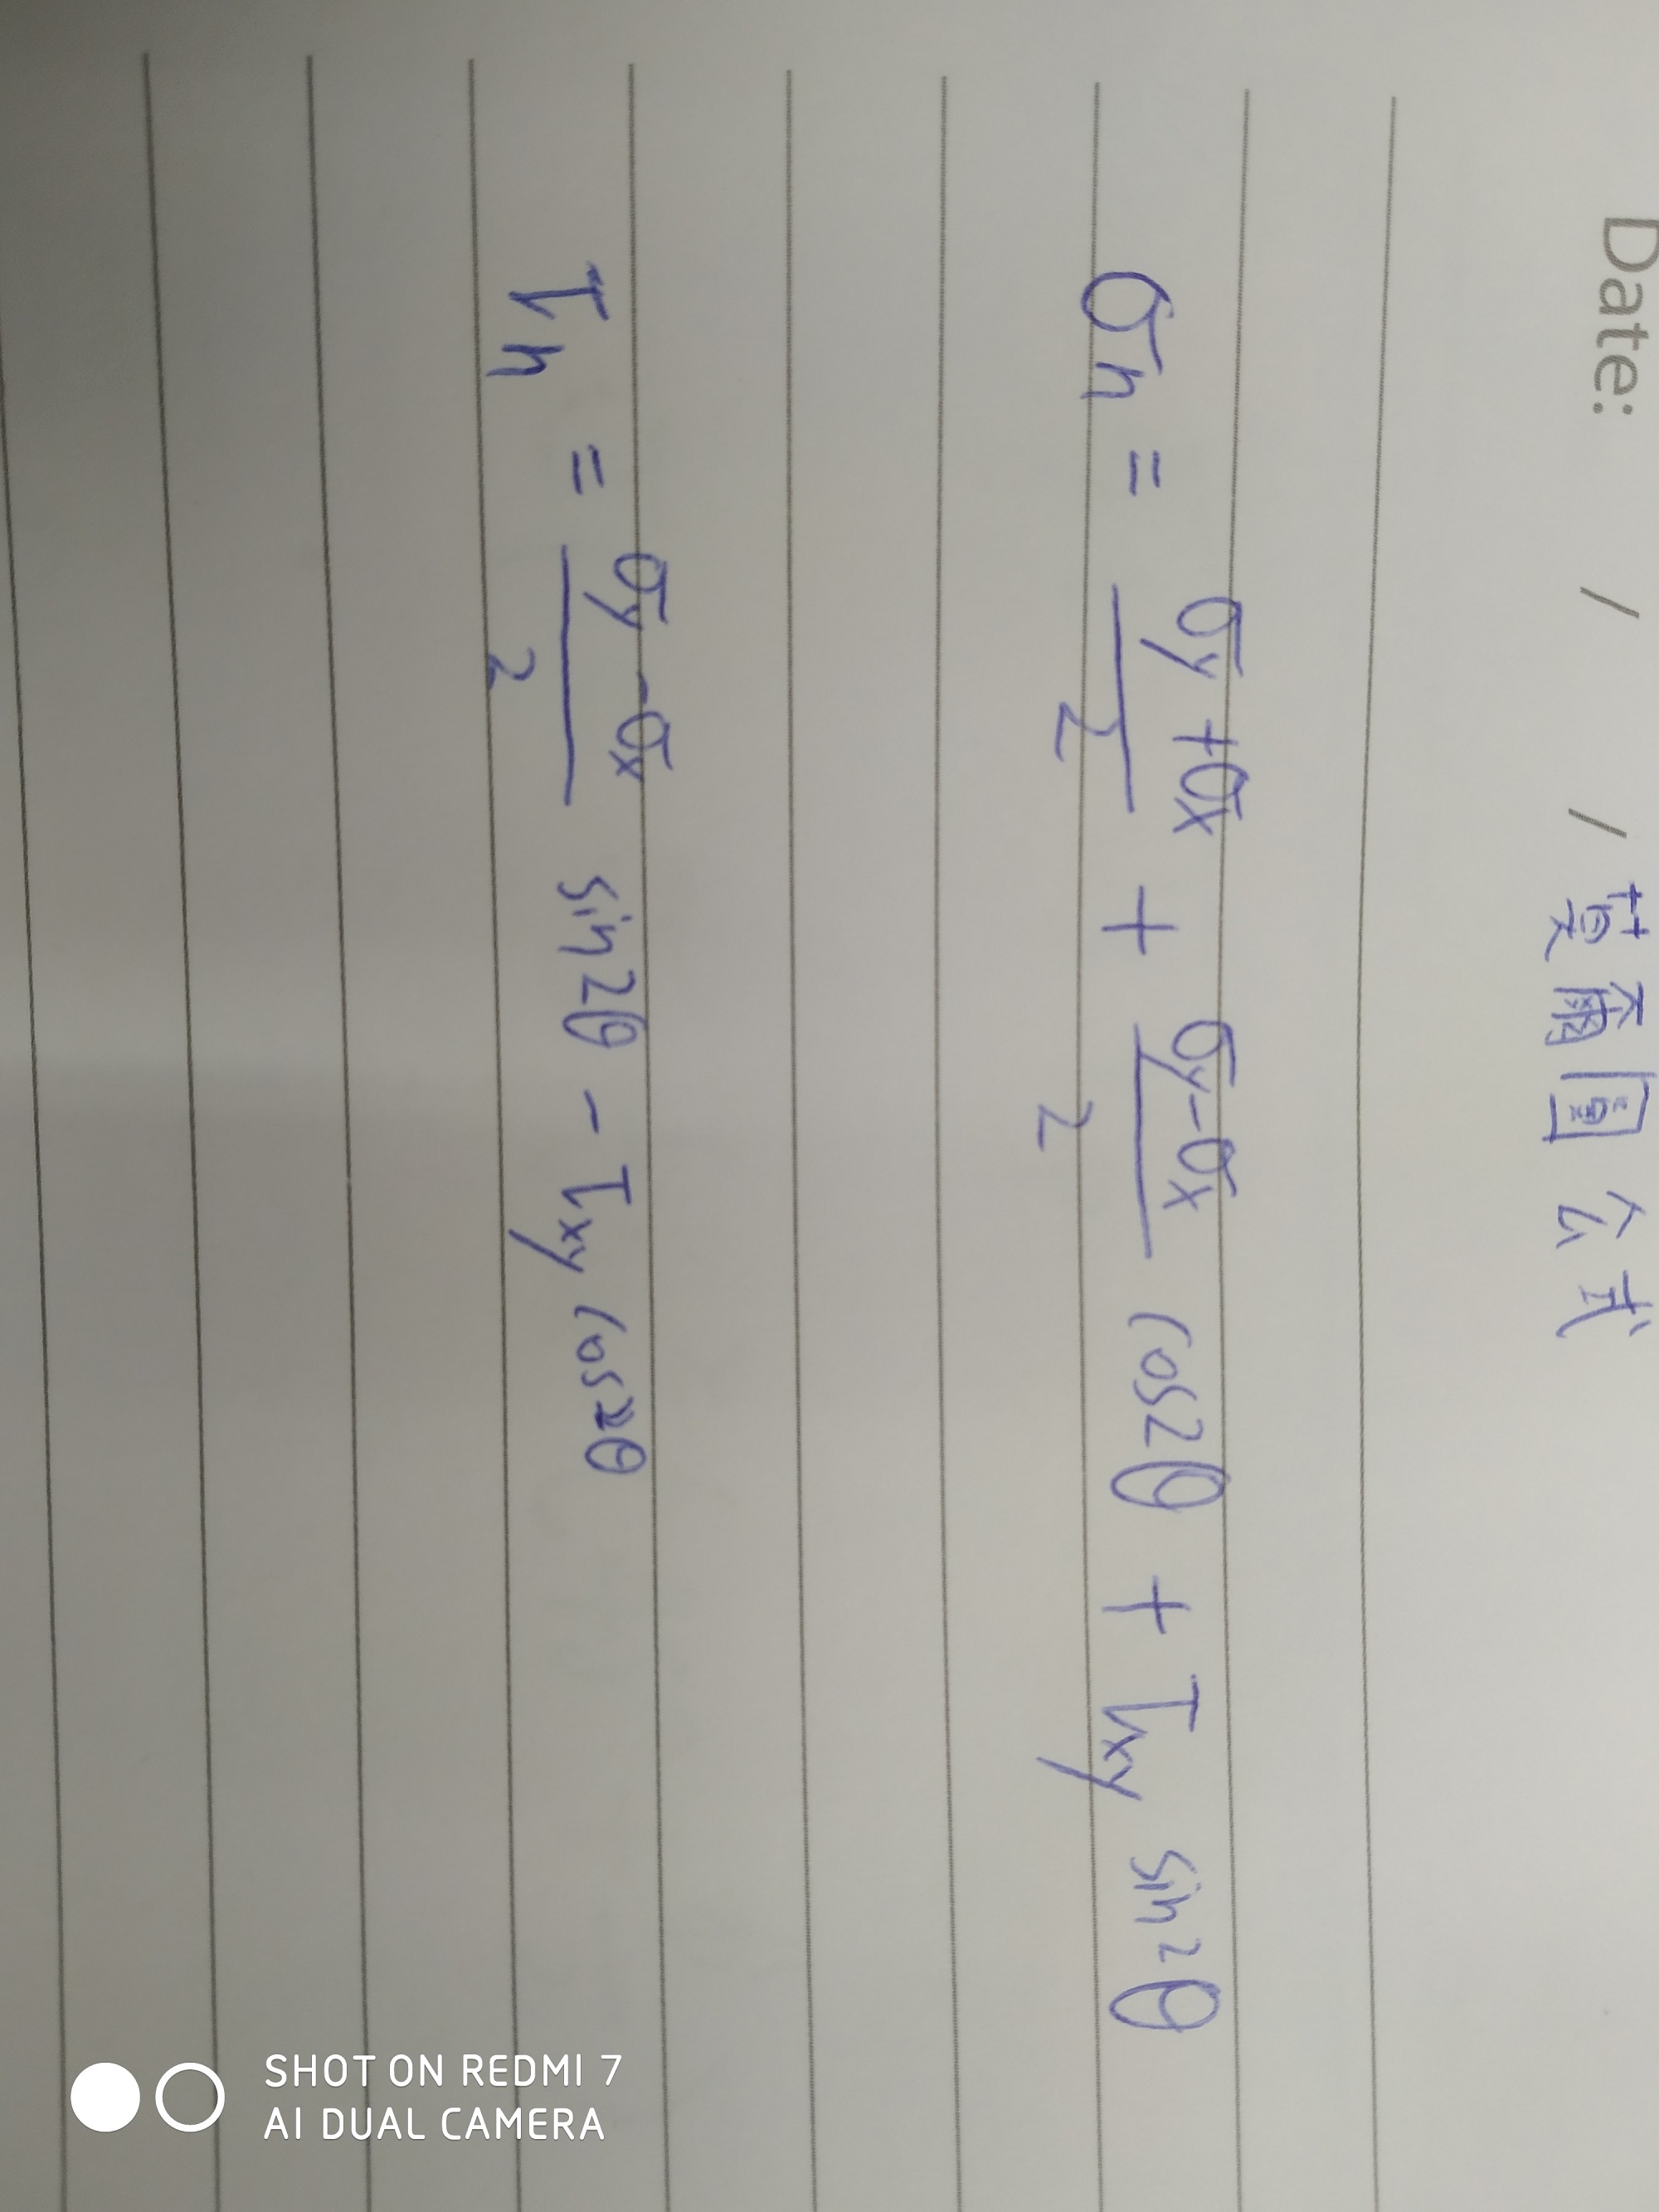 Date: / / 莫爾圓公式
σn = (σy+σx)/2 + (σy-σx)/2 cos2θ + τxy sin2θ
τn = (σy-σx)/2 sin2θ - τxy cos2θ
SHOT ON REDMI 7
AI DUAL CAMERA